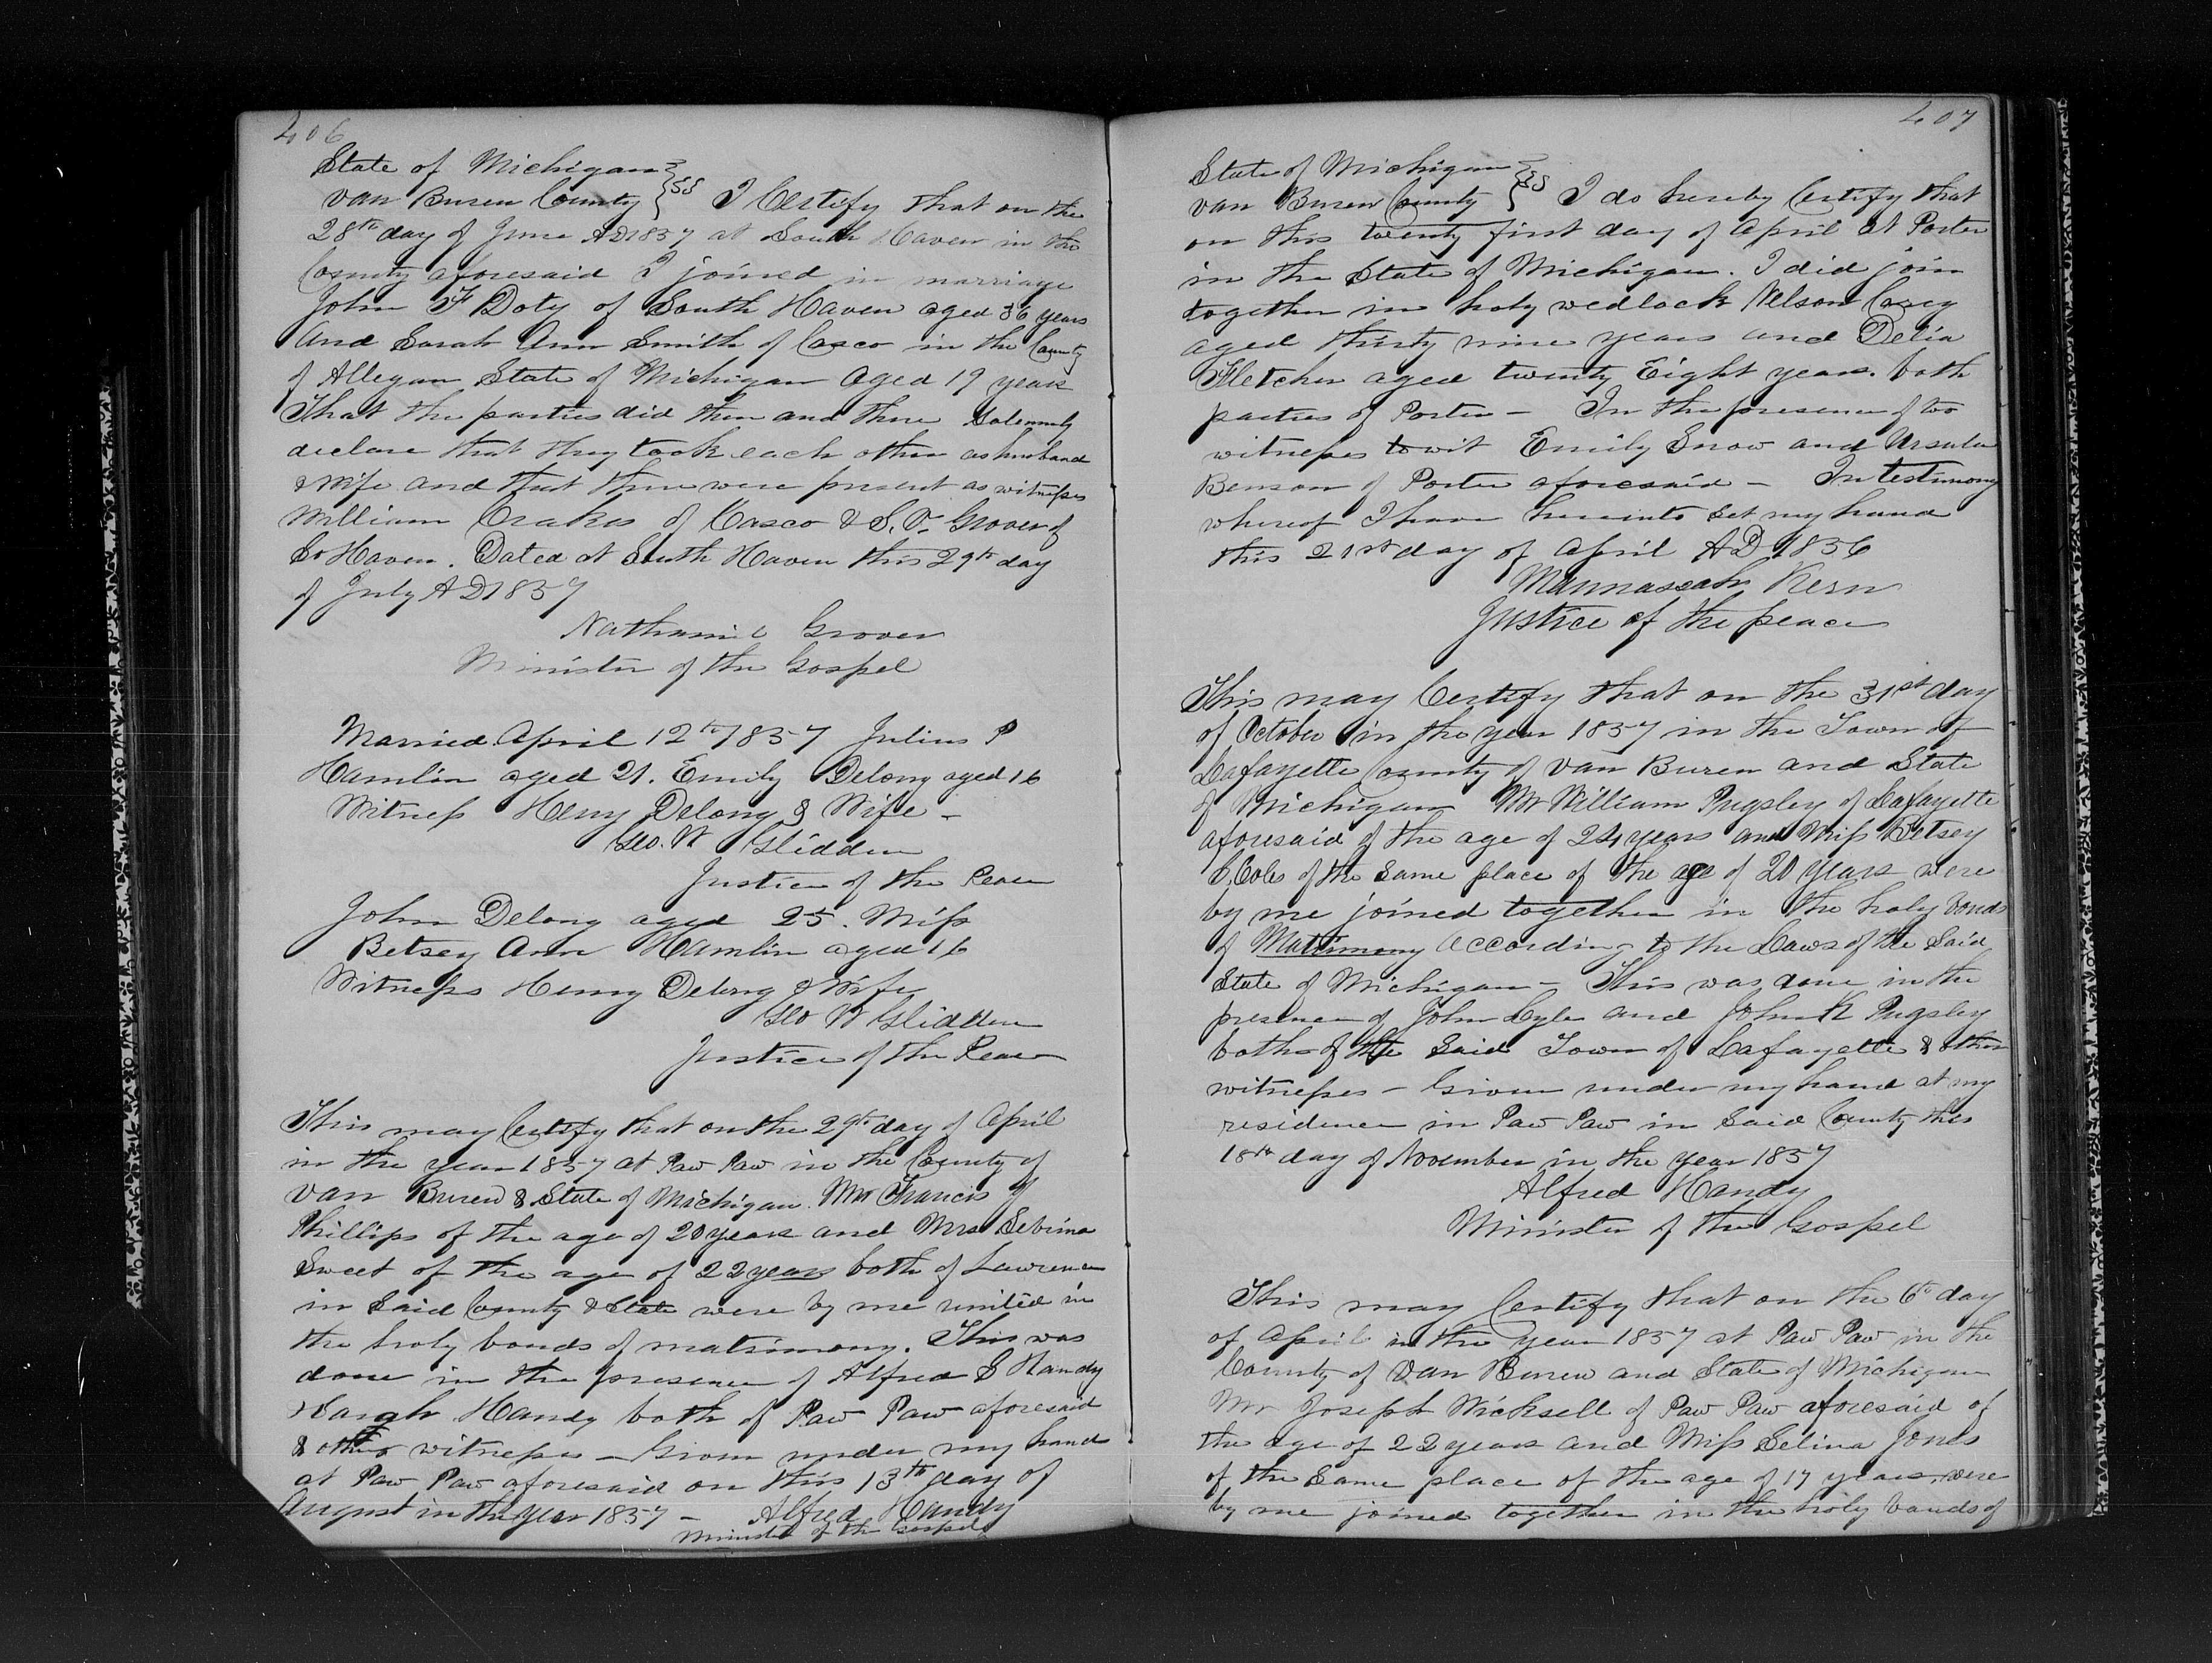 406
State of Michigan }
Van Buren County } SS I Certify that on the
28th day of June AD 1857 at South Haven in the
County aforesaid I joined in marriage
John F Doty of South Haven aged 36 years
And Sarah Ann Smith of Casco in the County
of Allegan State of Michigan Aged 19 years
That the parties did then and there Solemnly
declare that they took each other as husband
& Wife and that there were present as witnesses
William Crakes of Casco & S. Grover of
So Haven. Dated at South Haven this 29th day
of July AD 1857
Nathaniel Grover
Minister of the Gospel
Married April 12th 1857 Julius P
Hamlin aged 21. Emily Delong aged 16
Witness Henry Delong & Wife -
Geo. W Glidden
Justice of the Peace
John Delong aged 25. Miss
Betsey Ann Hamlin aged 16
Witness Henry Delong & Wife
Geo W Glidden
Justice of the Peace
This may Certify that on the 29th day of April
in the year 1857 at Paw Paw in the County of
Van Buren & State of Michigan. Mr Francis
Phillips of the age of 20 years and Mrs Sebina
Sweet of the age of 22 years both of Lawrence
in Said County & State were by me united in
the holy bonds of matrimony. This was
done in the presence of Alfred S Handy
Handy both of Paw Paw aforesaid
& others witnesses - Given under my hand
at Paw Paw aforesaid on this 13th day of
August in the year 1857 - Alfred Handy
Minister of the Gospel
407
State of Michigan }
Van Buren County } SS I do hereby Certify that
on this twenty first day of April at Porter
in the State of Michigan. I did join
together in holy wedlock Nelson Corey
aged thirty nine years and Delia
Fletcher aged twenty Eight years. both
parties of Porter - In the presence of two
witnesses towit Emily Snow and Ursula
Benson of Porter aforesaid - In testimony
whereof I have hereunto Set my hand
this 21st day of April AD 1856
Mannassah Kern
Justice of the peace
This may Certify that on the 31st day
of October in the year 1857 in the Town of
Lafayette County of Van Buren and State
of Michigan Mr William Pugsley of Lafayette
aforesaid of the age of 24 years and Miss Betsey
Coles of the Same place of the age of 20 years were
by me joined together in the holy bonds
of Matrimony according to the Laws of the Said
State of Michigan - This was done in the
presence of John Lyle and John K Pugsley
both of the Said Town of Lafayette & other
witnesses - Given under my hand at my
residence in Paw Paw in Said County this
18th day of November in the year 1857
Alfred Handy
Minister of the Gospel
This may Certify that on the 6th day
of April in the year 1857 at Paw Paw in the
County of Van Buren and State of Michigan
Mr Joseph Wicksell of Paw Paw aforesaid of
the age of 22 years and Miss Selina Jones
of the Same place of the age of 17 years. were
by me joined together in the holy bands of